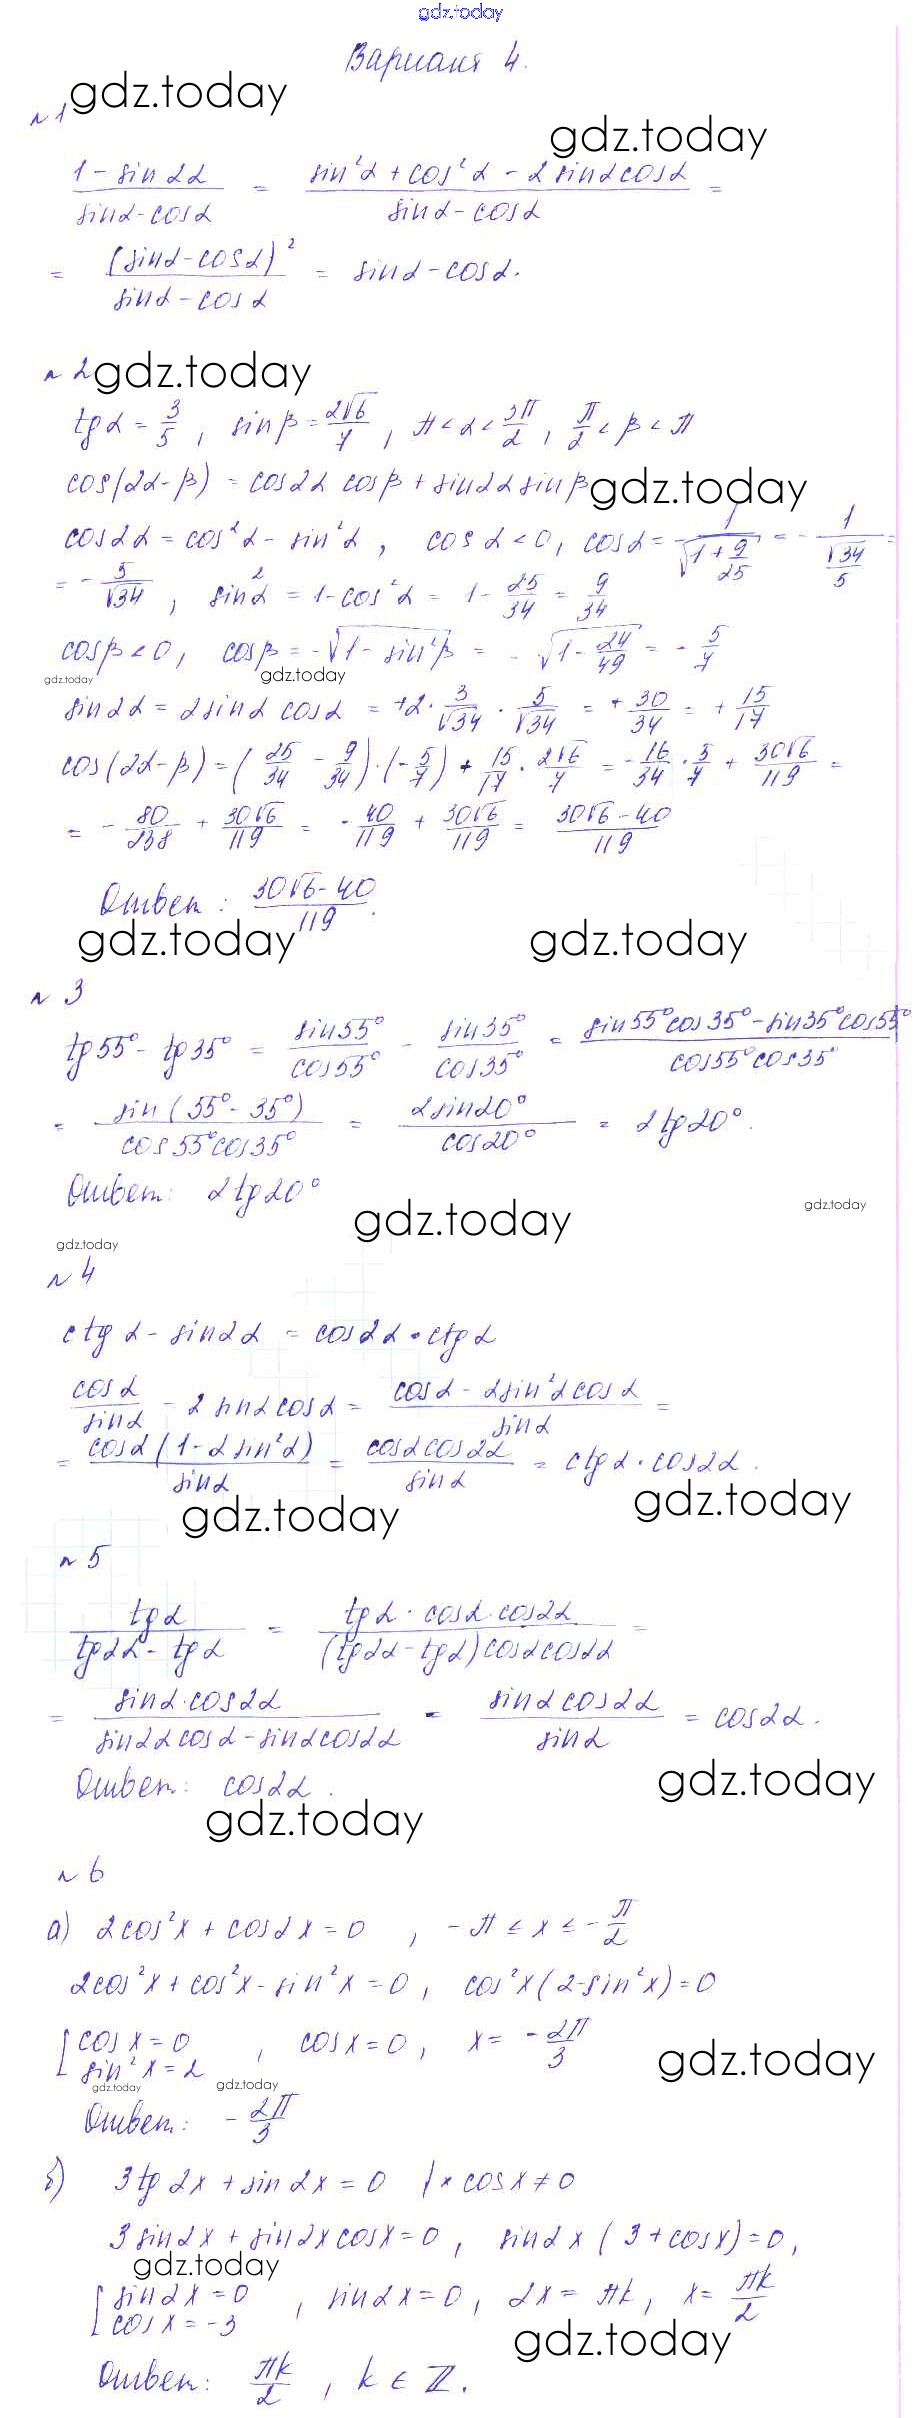 gdz.today
Вариант 4.
gdz.today
№1
gdz.today
(1 - sin 2α)/(sin α - cos α) = (sin²α + cos²α - 2 sin α cos α)/(sin α - cos α) =
= (sin α - cos α)²/(sin α - cos α) = sin α - cos α.
№2 gdz.today
tg α = 3/5, sin β = 2√6/7, π < α < 3π/2, π/2 < β < π
cos(2α - β) = cos 2α cos β + sin 2α sin β gdz.today
cos 2α = cos²α - sin²α, cos α < 0, cos α = 1/√(1 + 9/25) = - 1/(√34/5) =
= - 5/√34, sin²α = 1 - cos²α = 1 - 25/34 = 9/34
cos β < 0, cos β = -√(1 - sin²β) = -√(1 - 24/49) = - 5/7
gdz.today gdz.today
sin 2α = 2 sin α cos α = +2 · 3/√34 · 5/√34 = + 30/34 = + 15/17
cos(2α - β) = (25/34 - 9/34) · (- 5/7) + 15/17 · 2√6/7 = - 16/34 · 5/7 + 30√6/119 =
= - 80/238 + 30√6/119 = - 40/119 + 30√6/119 = (30√6 - 40)/119
Ответ: (30√6 - 40)/119.
gdz.today gdz.today
№3
tg 55° - tg 35° = sin 55°/cos 55° - sin 35°/cos 35° = (sin 55° cos 35° - sin 35° cos 55°)/(cos 55° cos 35°)
= sin(55° - 35°)/(cos 55° cos 35°) = 2 sin 20°/cos 20° = 2 tg 20°.
Ответ: 2 tg 20°
gdz.today gdz.today
gdz.today
№4
ctg α - sin 2α = cos 2α · ctg α
cos α/sin α - 2 sin α cos α = (cos α - 2 sin²α cos α)/sin α =
= cos α (1 - 2 sin²α)/sin α = cos α cos 2α/sin α = ctg α · cos 2α.
gdz.today gdz.today
№5
tg α/(tg 2α - tg α) = (tg α · cos α · cos 2α)/((tg 2α - tg α) cos α cos 2α) =
= (sin α · cos 2α)/(sin 2α cos α - sin α cos 2α) = (sin α cos 2α)/sin α = cos 2α.
Ответ: cos 2α.
gdz.today
gdz.today
№6
а) 2cos²x + cos 2x = 0, -π ≤ x ≤ -π/2
2cos²x + cos²x - sin²x = 0, cos²x (2 - sin²x) = 0
[cos x = 0, cos x = 0, x = - 2π/3
sin²x = 2
gdz.today
gdz.today gdz.today
Ответ: - 2π/3
б) 3 tg 2x + sin 2x = 0 | × cos x ≠ 0
3 sin 2x + sin 2x cos x = 0, sin 2x (3 + cos x) = 0,
gdz.today
[sin 2x = 0, sin 2x = 0, 2x = πk, x = πk/2
cos x = -3
gdz.today
Ответ: πk/2, k ∈ ℤ.